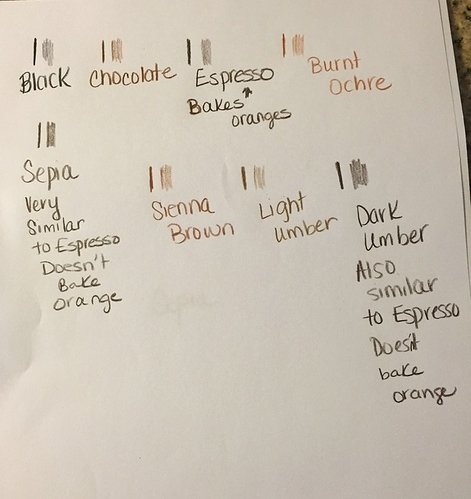 Black
Chocolate
Espresso
Bakes
oranges
Burnt
Ochre
Sepia
Very
Similar
to Espresso
Doesn't
Bake
orange
Sienna
Brown
Light
Umber
Dark
Umber
Also
similar
to Espresso
Does't
bake
orange